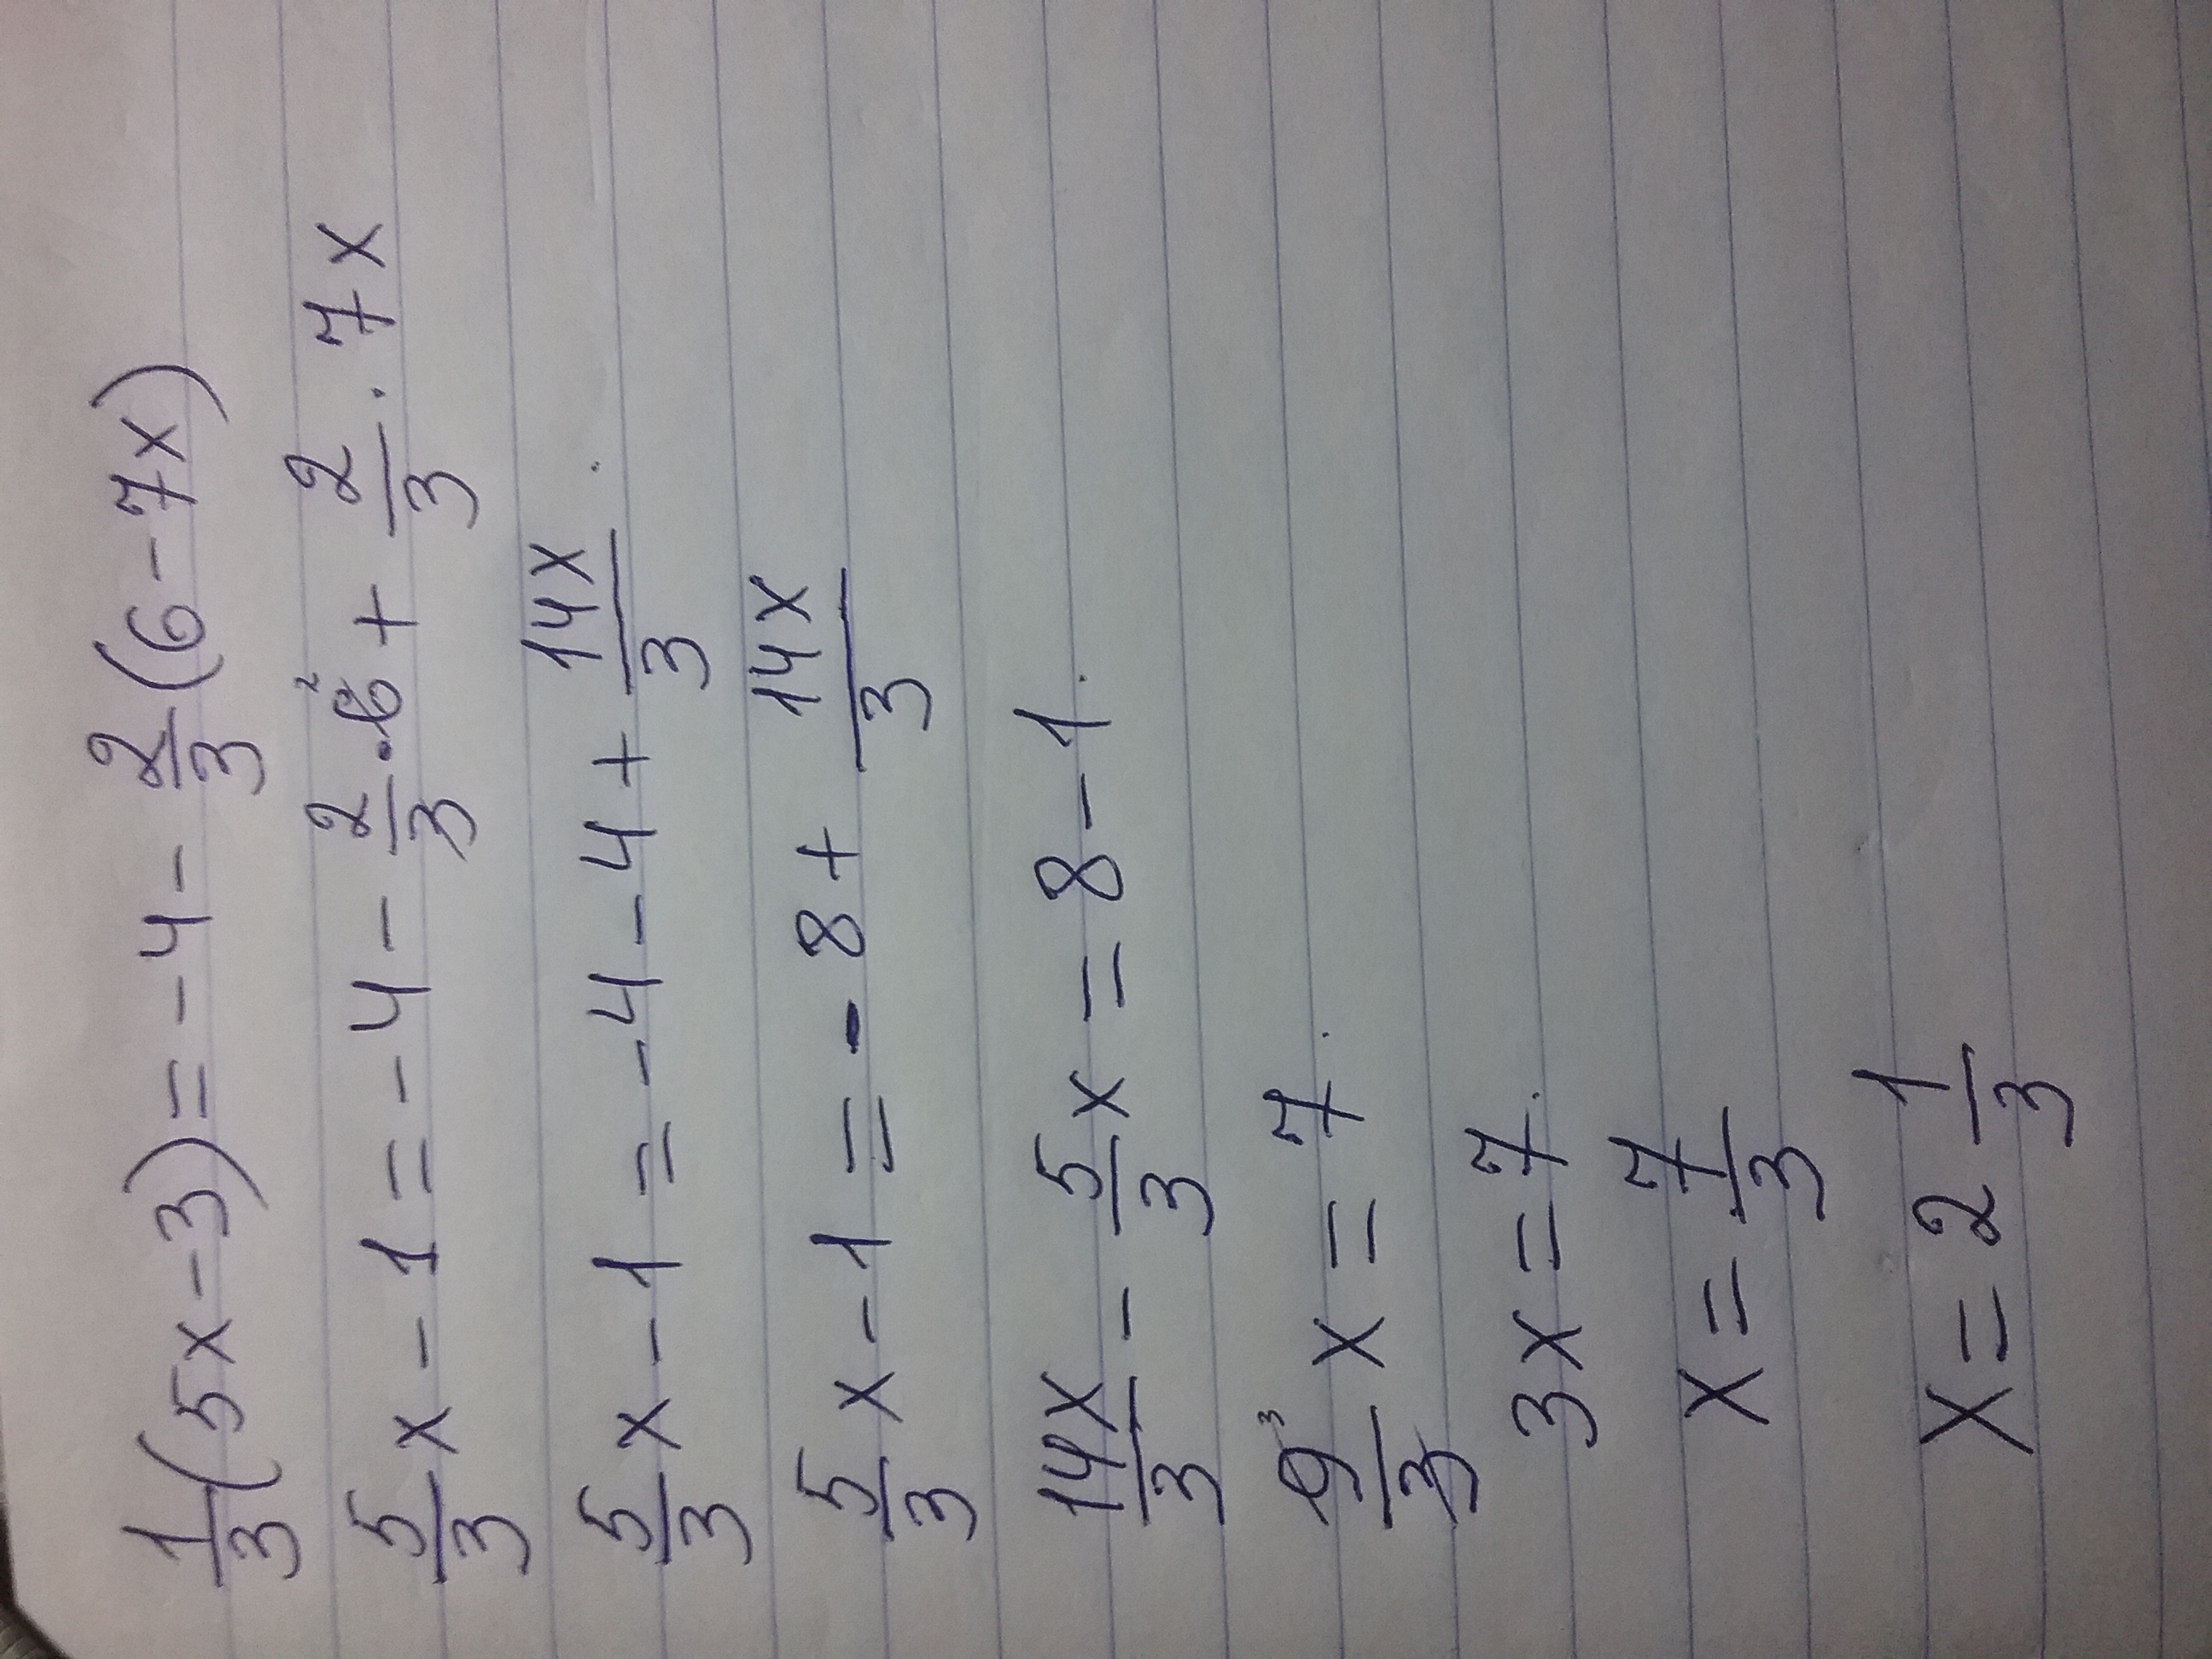 1/3(5x-3)=-4-2/3(6-7x)
5/3x-1=-4-2/3·6²+2/3·7x
5/3x-1=-4-4+14x/3.
5/3x-1=-8+14x/3
14x/3-5/3x=8-1.
9³/3x=7.
3x=7.
x=7/3
x=2 1/3